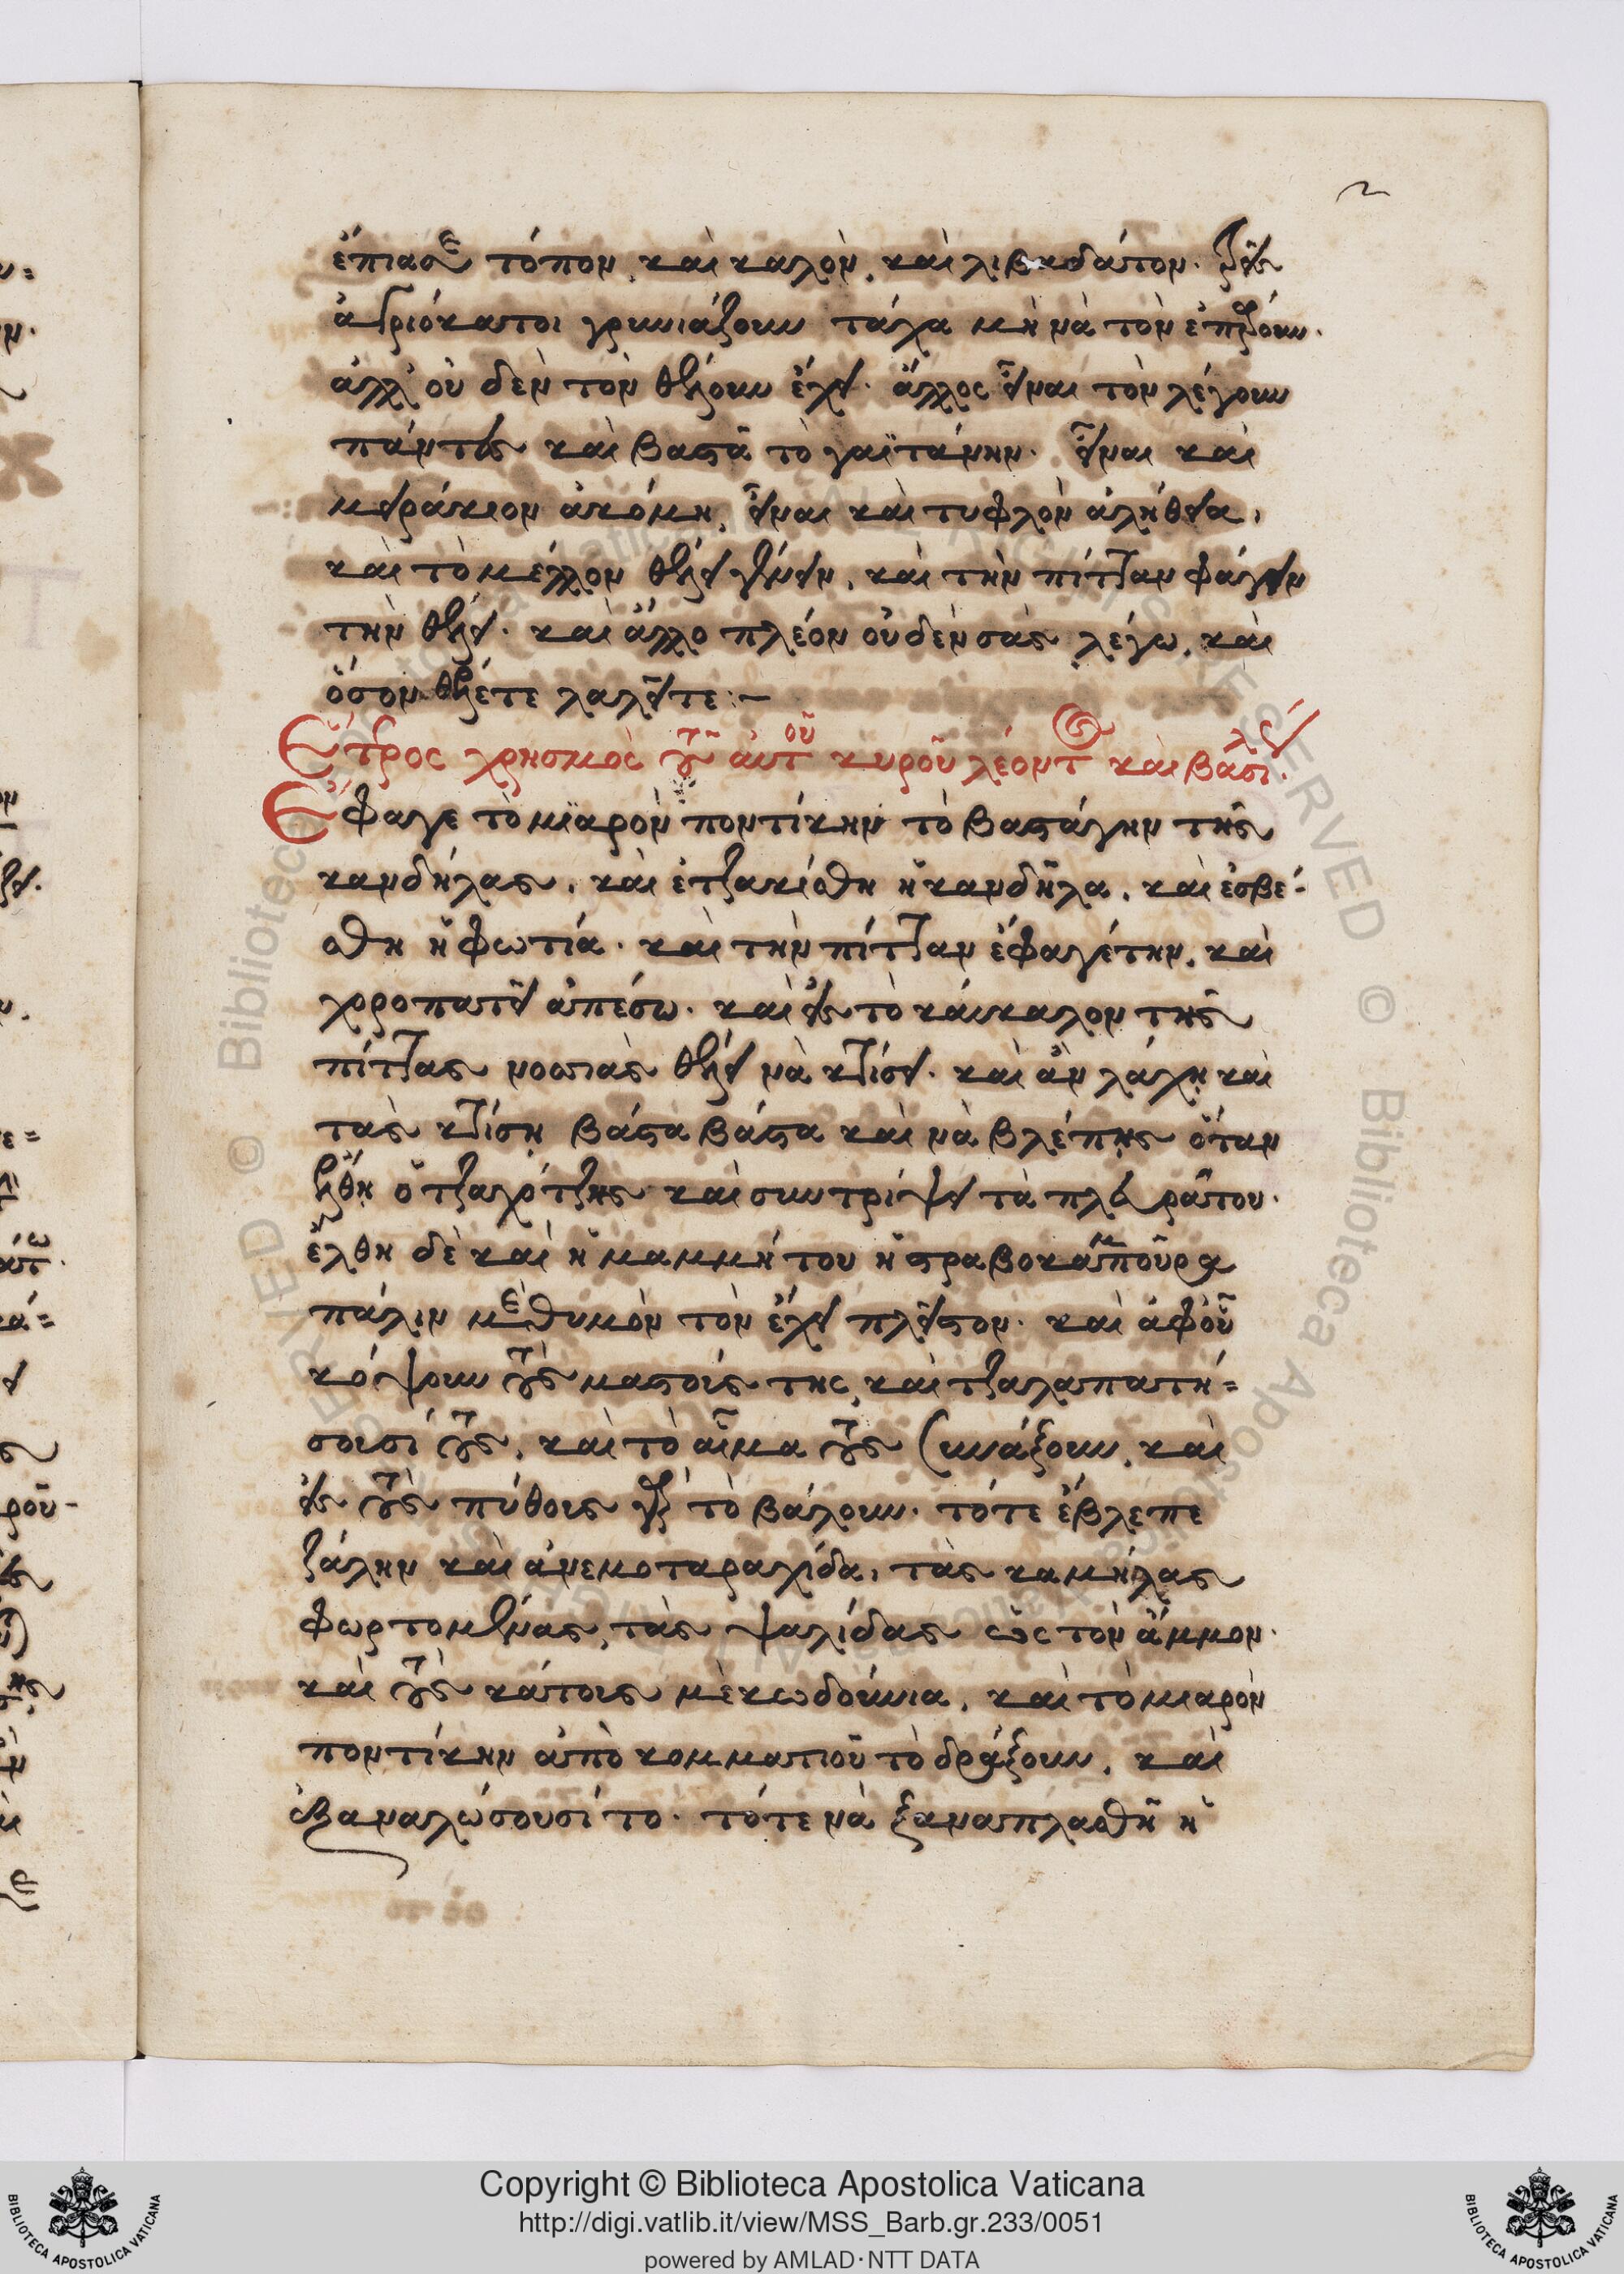 ἔπιασε τόπον, καὶ καλὸν, καὶ λιβαδάτον. τρεῖς
ἀγριόκατοι γρυνιάζουν τάχα μὴ νὰ τὸν ἐπάρουν.
ἀλλ' οὐ δὲν τὸν θέλουν ἔχει. ἄλλος εἶναι τὸν λέγουν
πάντες καὶ βαστᾶ τὸ γαϊτάνην. εἶναι καὶ
μειράκιον ἀκόμη, εἶναι καὶ τυφλὸν ἀλήθεια,
καὶ τὸ μέλλον θέλει γένειν, καὶ τὴν πίτταν φάγειν
τὴν θέλει. καὶ ἄλλο πλέον οὐδὲν σᾶς λέγω, καὶ
ὅσον θέλετε λαλεῖτε :—
Ἕτερος χρησμὸς τοῦ αὐτοῦ κυροῦ λέοντος καὶ βασιλέως.
Ἔφαγε τὸ μϊαρὸν ποντίκην τὸ βαστάγην τῆς
κανδήλας, καὶ ἐτζακίσθη ἡ κανδῆλα, καὶ ἐσβέ-
σθη ἡ φωτία. καὶ τὴν πίτταν ἔφαγέ την, καὶ
χοροπατεῖ ἀπέσω. καὶ εἰς τὸ κάυκαλον τῆς
πίττας νοσσιὰς θέλει νὰ κτίσει. καὶ ἂν λάχη καὶ
τὰς κτίση βάστα βάστα καὶ νὰ βλέπης ὅταν
ἔλθη ὁ τζαγρότζης καὶ συντρίψει τὰ πλευρά του.
ἔλθη δὲ καὶ ἡ μαμμή του ἡ στραβοκαμποῦρα
πάλιν μὲ θυμὸν τὸν ἔχει πλεῖστον. καὶ ἀφοῦ
κόψουν τοὺς μαστούς της, καὶ τζαλαπατή-
σουσί τους, καὶ τὸ αἷμα τους συνάξουν, καὶ
εἰς τοὺς πύθους τους τὸ βάλουν. τότε ἔβλεπε
ζάλην καὶ ἀνεμοταραχίδα, τὰς καμήλας
φωρτομένας, τὰς ψαλίδας ὡς τὸν ἄμμον.
καὶ τοὺς κάτους μὲ κωδούνια, καὶ τὸ μιαρὸν
ποντίκην ἀπὸ κομματιοῦ τὸ δράξουν, καὶ
ἐξαναλώσουσί το. τότε νὰ ξαναπλασθῆ ἡ
Copyright © Biblioteca Apostolica Vaticana
http://digi.vatlib.it/view/MSS_Barb.gr.233/0051
powered by AMLAD·NTT DATA